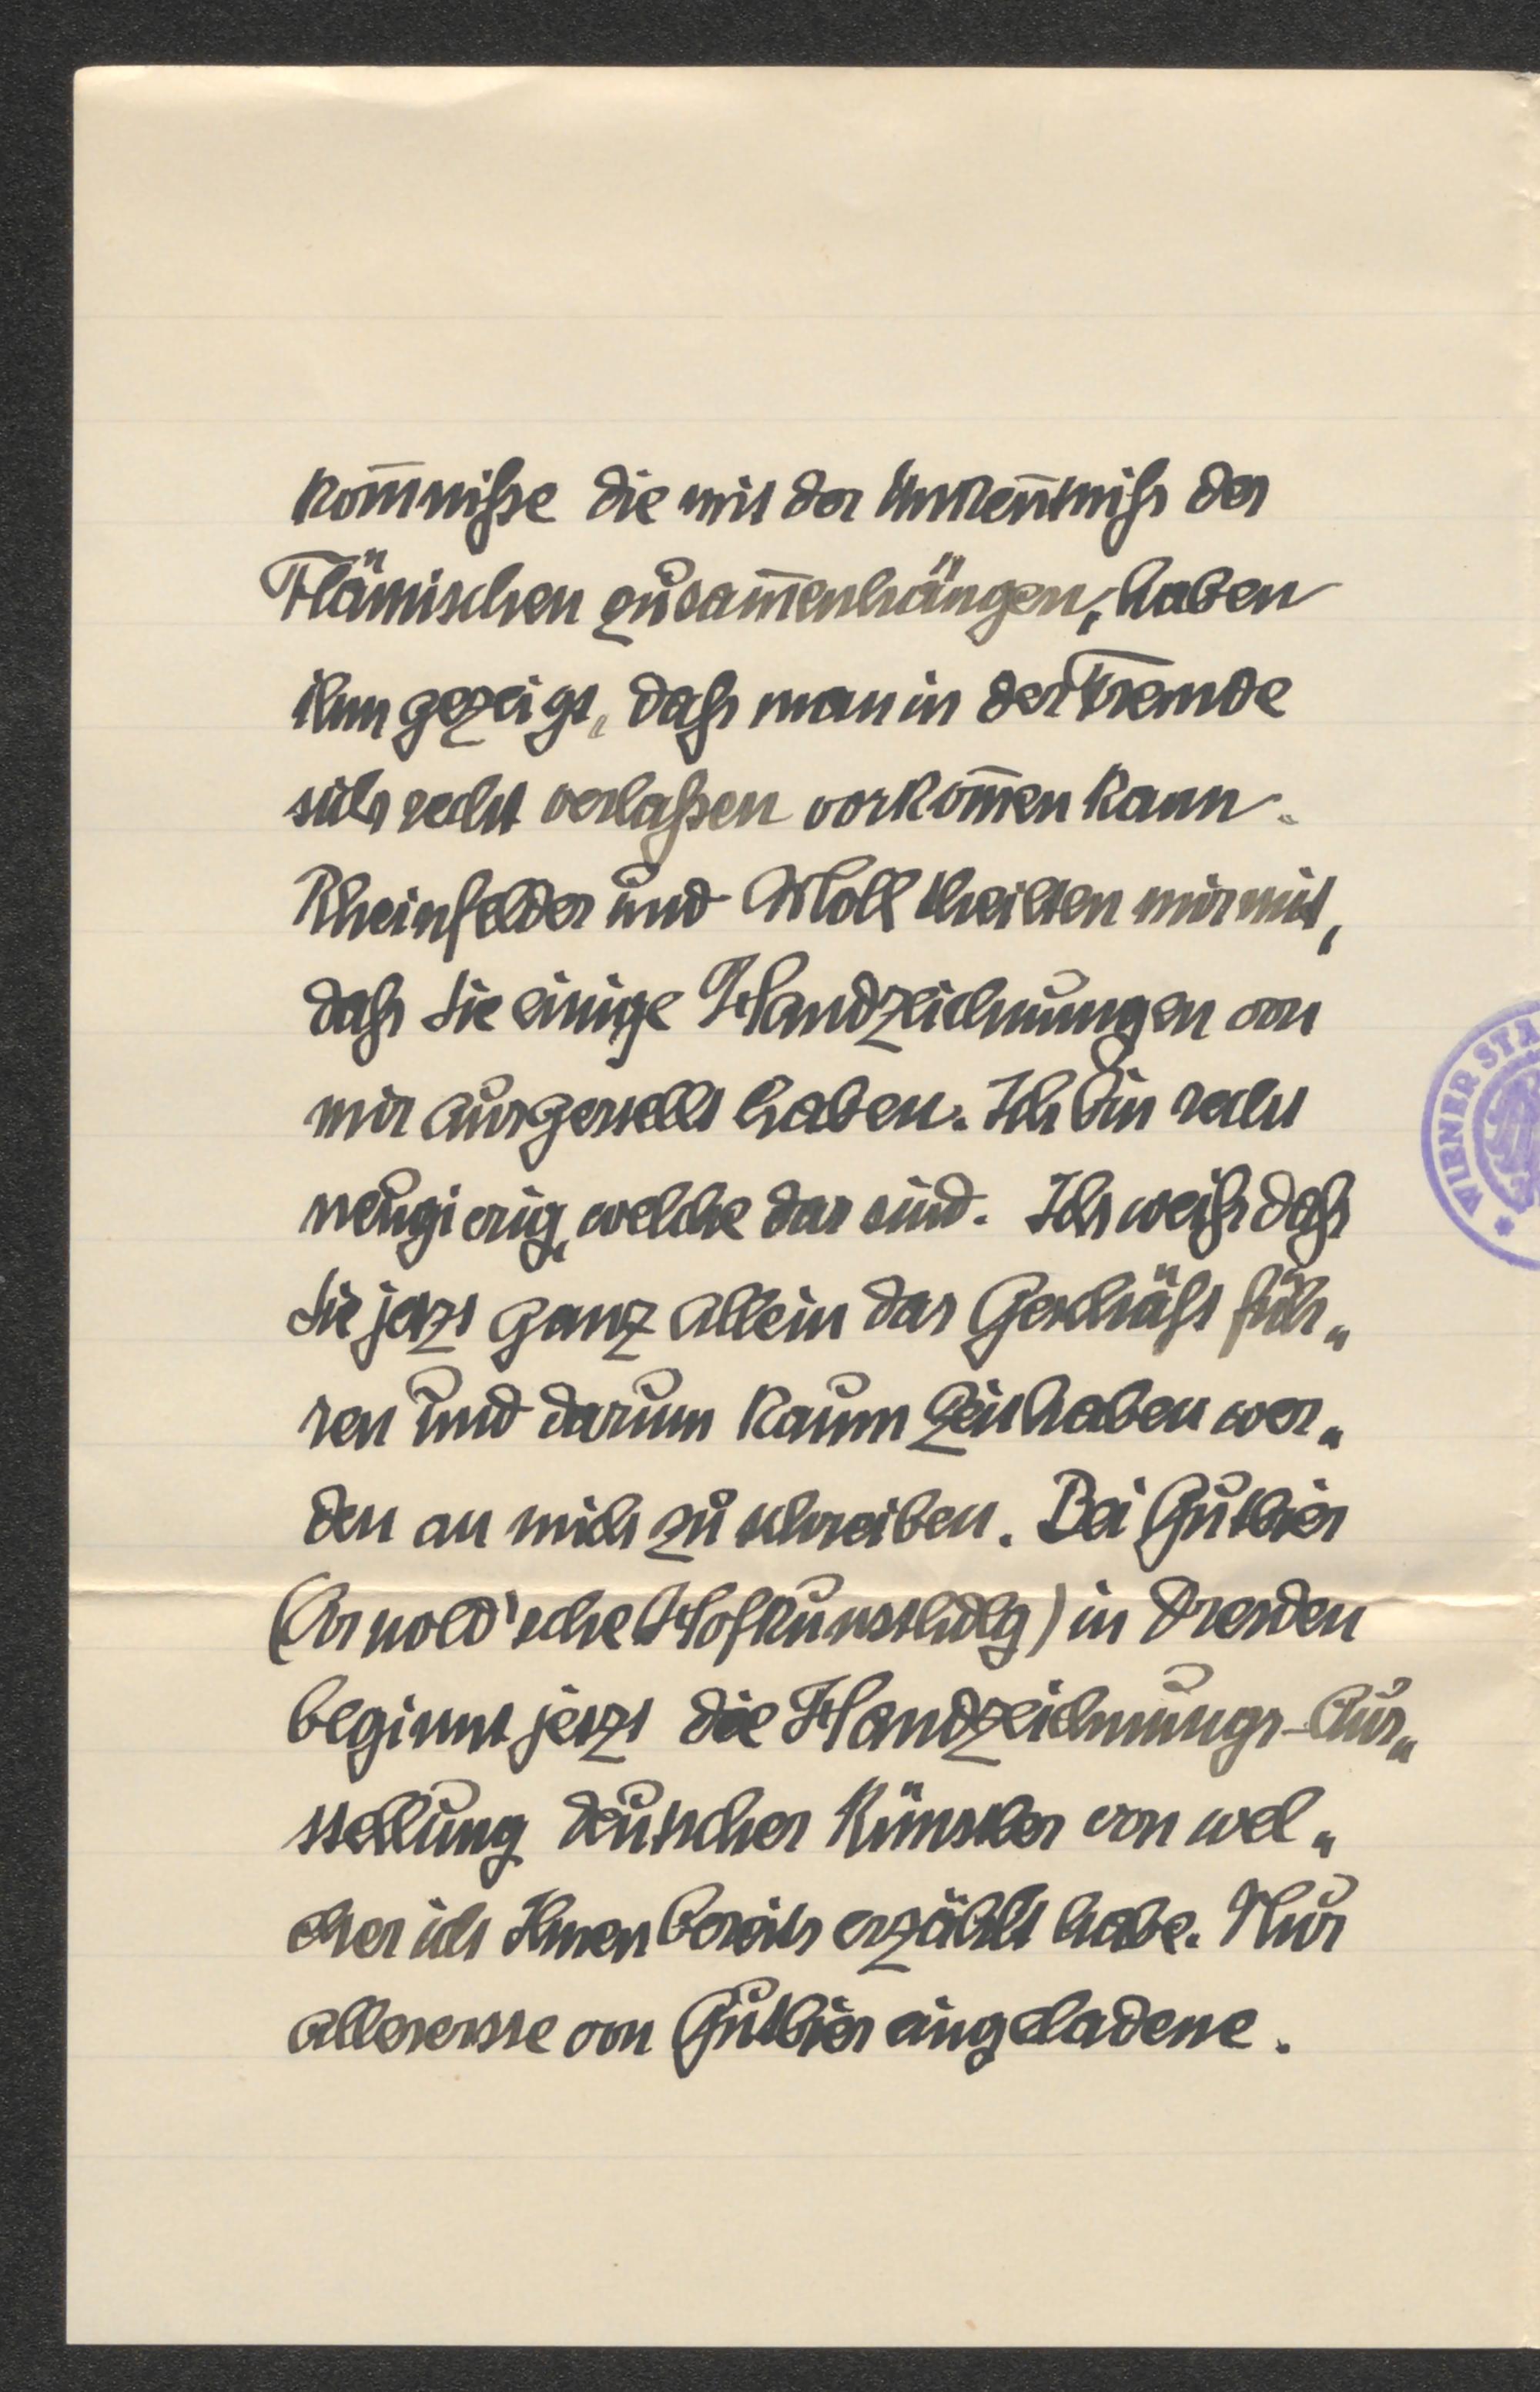 kom̄niße die mit der Unken̄tniß des
Flämischen zusam̄enhängen, haben
ihm gezeigt, daß man in der Fremde
sich recht verlaßen vorkom̄en kann.
Rheinfelder und Moll theilten mir mit,
daß Sie einige Handzeichnungen von
mir ausgestellt haben. Ich bin recht
neugierig, welche das sind. Ich weiß daß
Sie jetzt ganz allein das Geschäft füh„
ren und darum kaum Zeit haben wer„
den an mich zu schreiben. Bei Gutbier
(Arnold'sche Hofkunsthdlg) in Dresden
beginnt jetzt die Handzeichnungs-Aus„
stellung deutscher Künstler von wel„
cher ich Ihnen bereits erzählt habe. Nur
allererste von Gutbier eingeladene.
WIENER STA